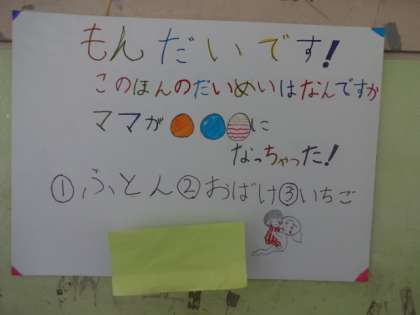 もんだいです!
このほんのだいめいはなんですか
ママが●●●に
なっちゃった!
①ふとん②おばけ③いちご